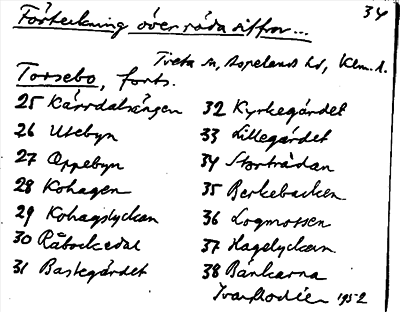 34
Förteckning över röda siffror...
Tveta sn, Aspelands hd, Klm. l.
Torsebo, forts.
25 Kärrdalsängen
26 Utebyn
27 Oppebyn
28 Kohagen
29 Kohagslyckan
30 Råbockedal
31 Bastegärdet
32 Kyrkegärdet
33 Lillegärdet
34 Stortrådan
35 Berkebacken
36 Logmossen
37 Hagelyckan
38 Bänkarna
Ivar Modéer 1952